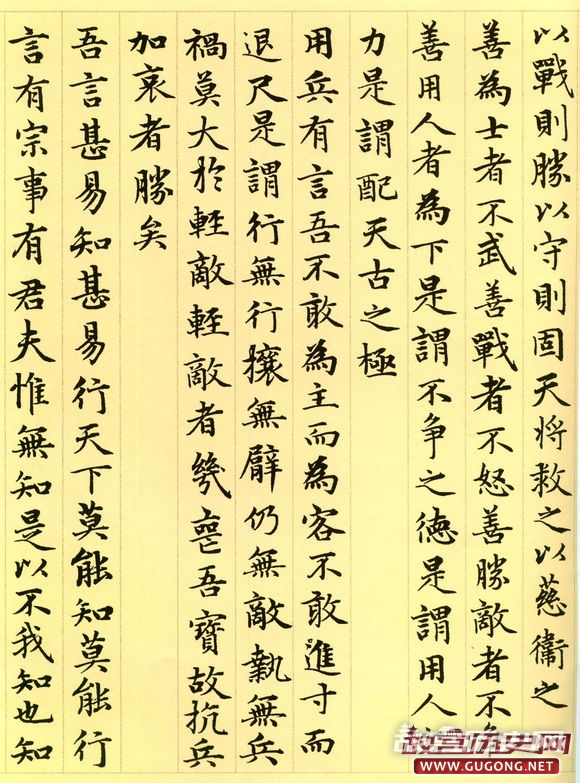 以戰則勝以守則固天將救之以慈衞之
善為士者不武善戰者不怒善勝敵者不争
善用人者為下是謂不争之德是謂用人
力是謂配天古之極
用兵有言吾不敢為主而為客不敢進寸而
退尺是謂行無行攘無臂仍無敵執無兵
禍莫大於輕敵輕敵者幾喪吾寶故抗兵
加哀者勝矣
吾言甚易知甚易行天下莫能知莫能行
言有宗事有君夫惟無知是以不我知也知
故宫历史网
WWW.GUGONG.NET